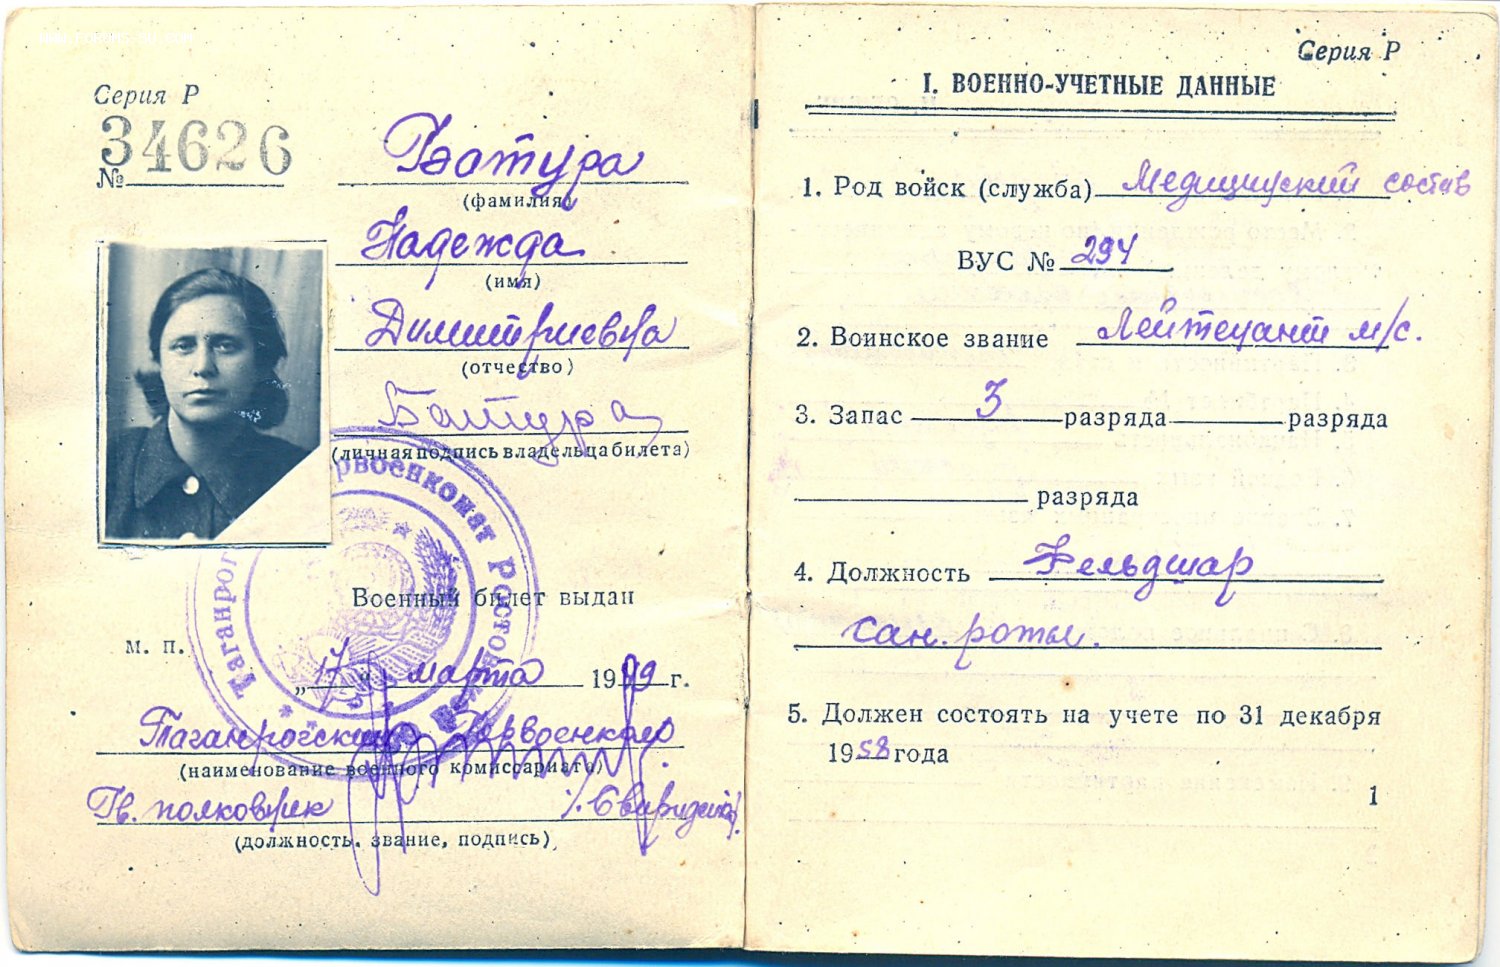 Серия Р
34626
№
Батура
(фамилия)
Надежда
(имя)
Димитриевна
(отчество)
Батура
(личная подпись владельца билета)
Таганрог рвоенкомат Ростов
Военный билет выдан
м. п.
„17" марта 1949 г.
Таганрогским Горвоенкомато
(наименование военного комиссариата)
Гв. полковник
(должность, звание, подпись)
Серия Р
I. ВОЕННО-УЧЕТНЫЕ ДАННЫЕ
1. Род войск (служба) Медицинский состав
ВУС № 294
2. Воинское звание Лейтенант м/с.
3. Запас 3 разряда разряда
разряда
4. Должность Фельдшар
сан. роты.
5. Должен состоять на учете по 31 декабря
1958 года
1